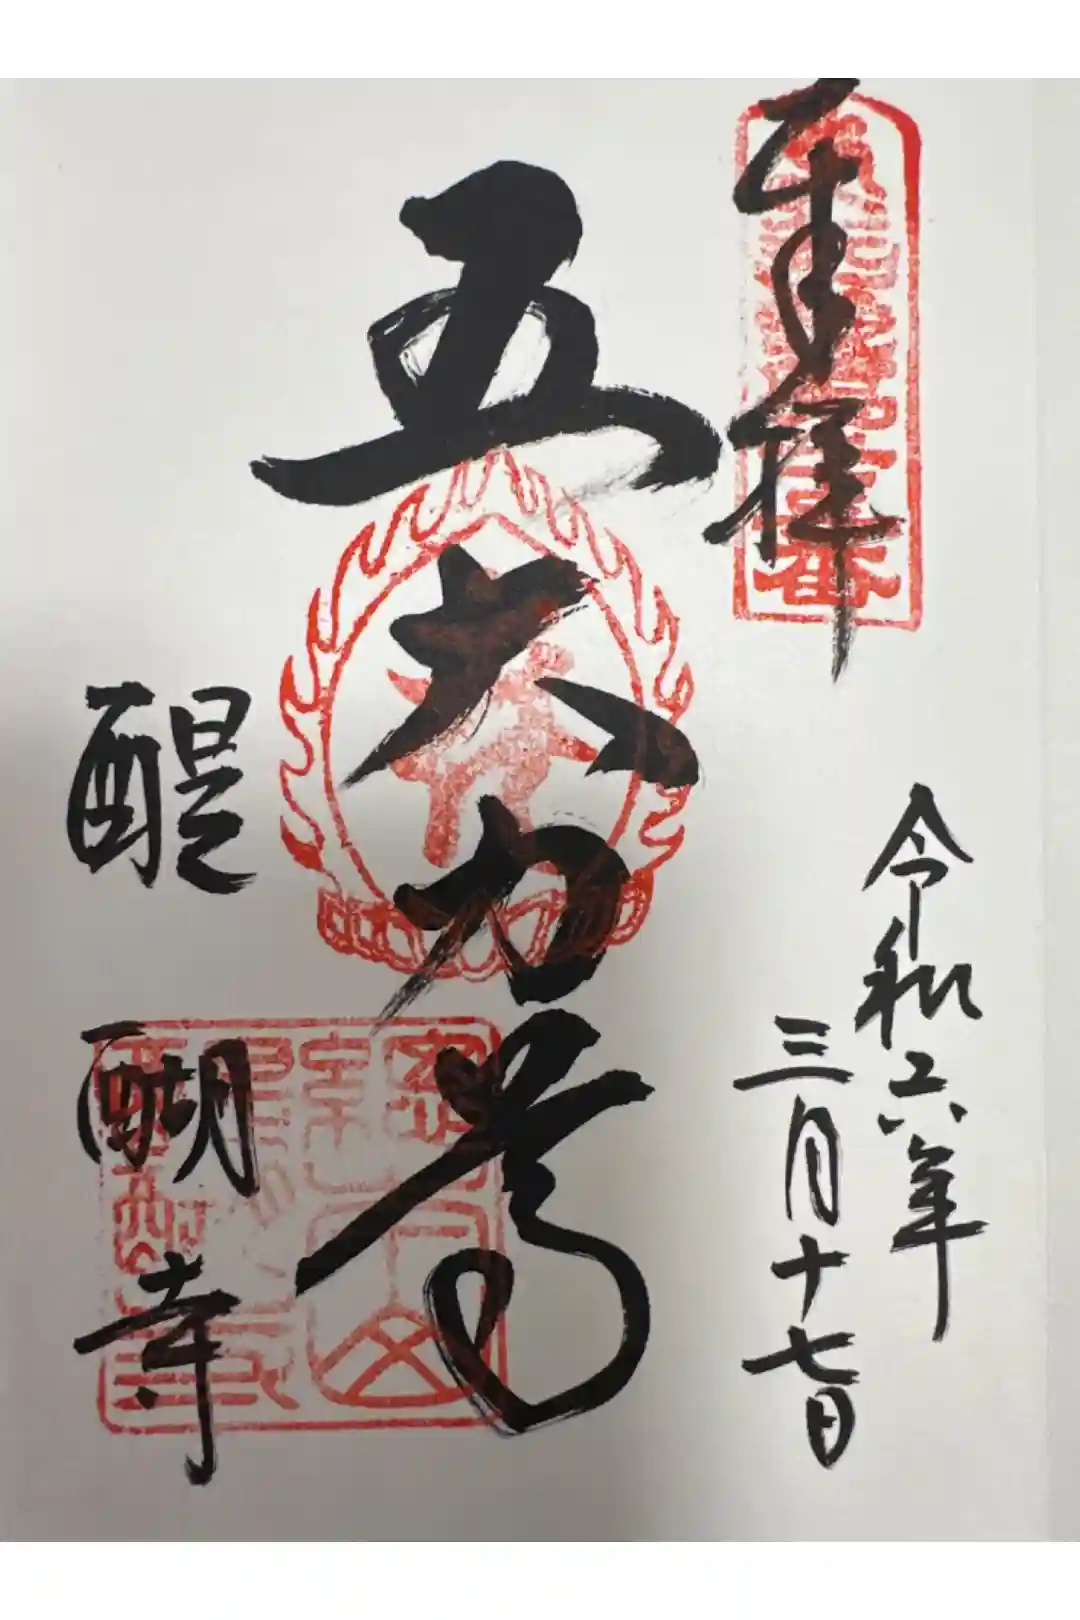 奉拝
令和六年
三月十七日
五大力尊
醍醐寺